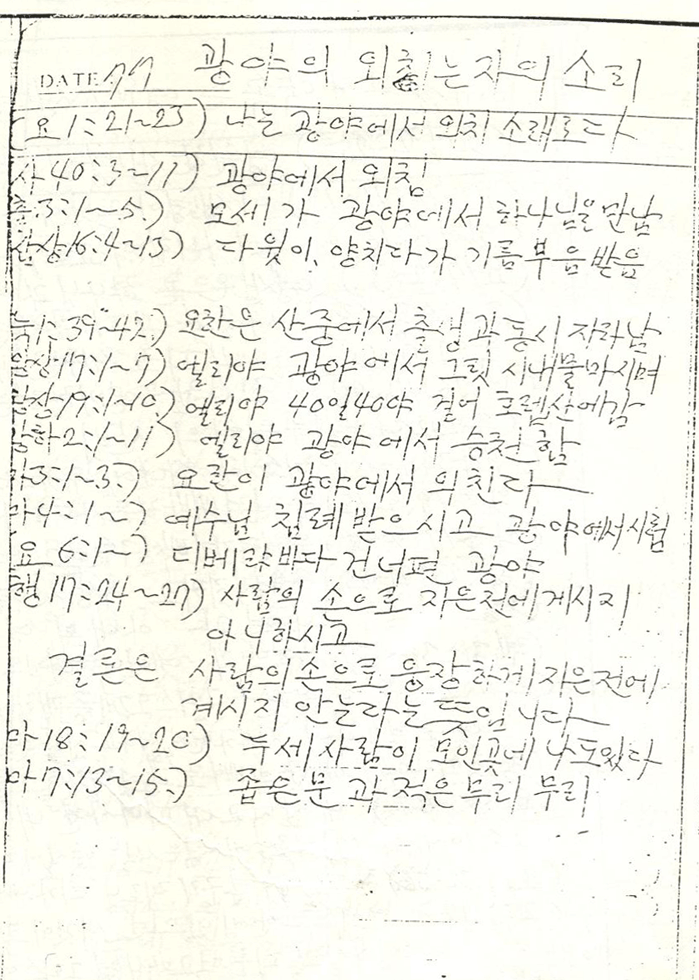 DATE 77 광야의 외치는자의 소리
(요 1:21~23) 나는 광야에서 외치 소래로다
사 40:3~11) 광야에서 외침
출3:1~5.) 모세가 광야에서 하나님을 만남
삼상16:4~13) 다윗이, 양치다가 기름부음 받음
눅1:39~42.) 요한은 산중에서 출생과 동시 자라남
왕상17:1~7) 엘리야 광야에서 그릿 시내물마시며
왕상19:1~10) 엘리야 40일40야 걸어 호렙산에감
왕하2:1~11) 엘리야 광야에서 승천함
마3:1~3.) 요한이 광야에서 외친다
마4:1~) 예수님 침례 받으시고 광야에서시험
요 6:1~) 디베랴바다 건너편 광야
행17:24~27) 사람의 손으로 지은전에 게시지
아니하시고
결론은 사람의손으로 웅장하게 지은전에
계시지 안는라는 뜻입니다
마18:19~20) 두세사람이 모인곳에 나도있다
마7:13~15.) 좁은문과 적은무리 무리